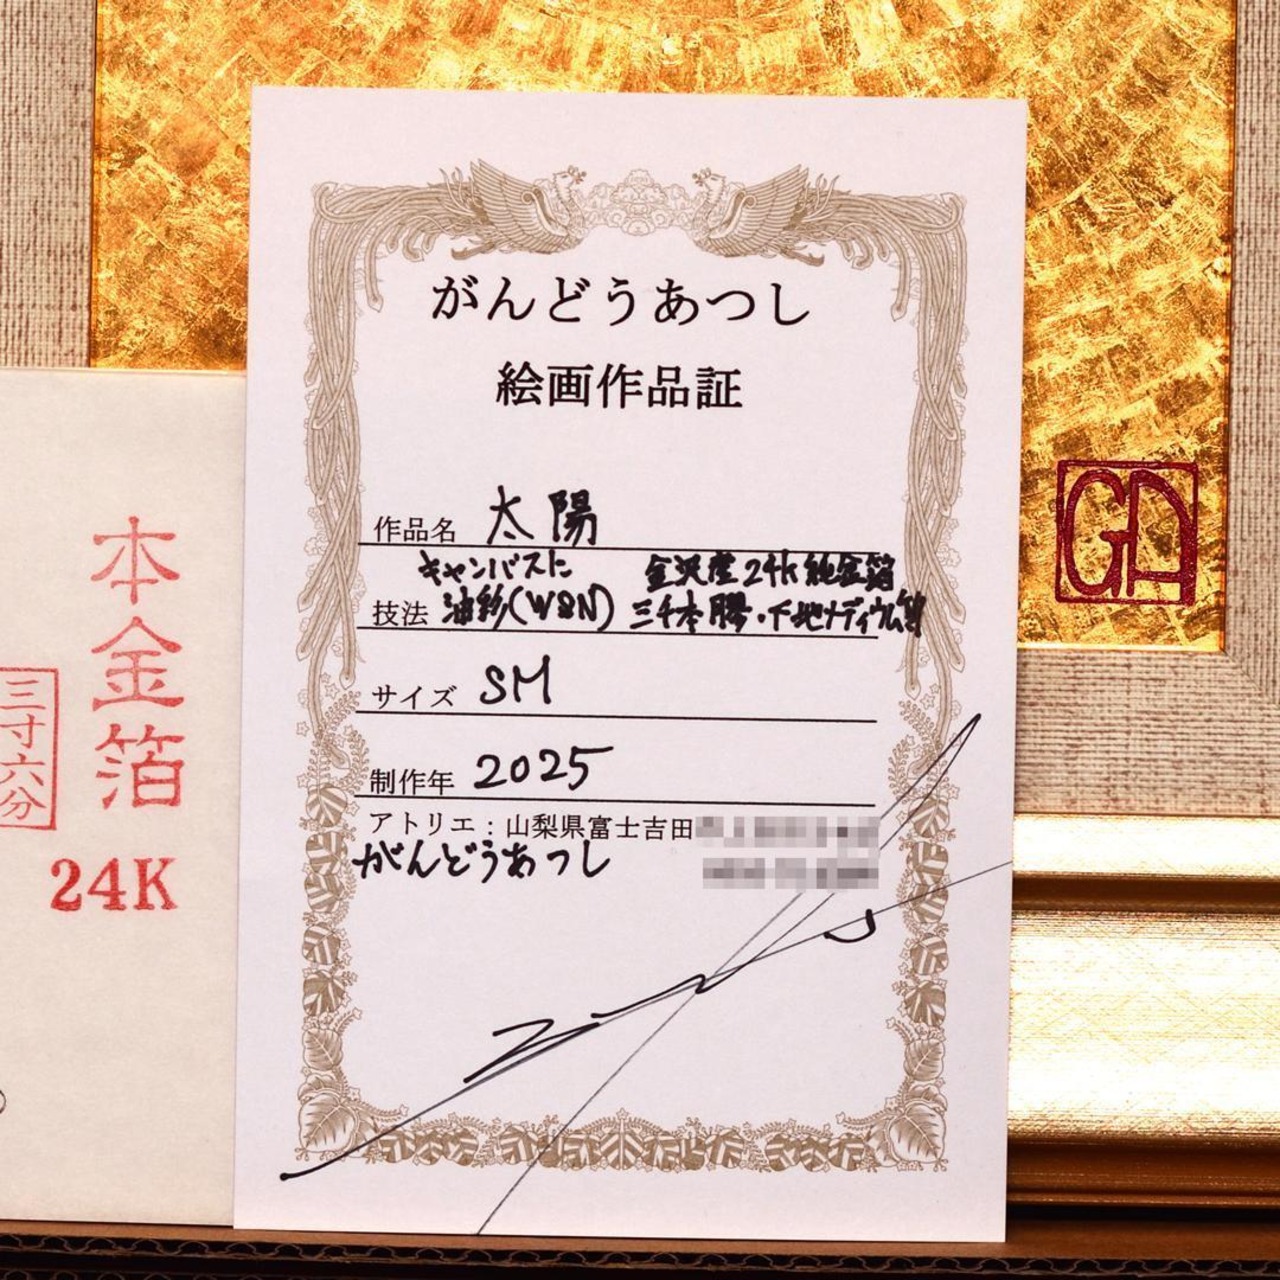 がんどうあつし
絵画作品証
作品名 太陽
キャンバスに 金沢産24k純金箔
技法 油彩(W&N) 三千本膠・下地メディウム等
サイズ SM
制作年 2025
アトリエ：山梨県富士吉田
がんどうあつし
本金箔
三寸六分
24K
GA